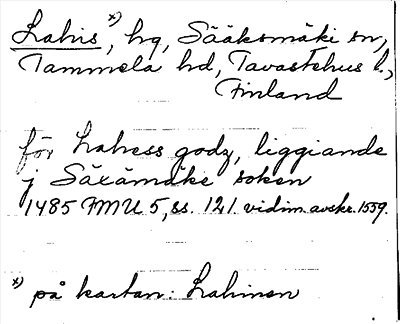 Lahis *), hg, Sääksmäki sn,
Tammela hd, Tavastehus l.,
Finland
för Lahess godz, liggiande
j Säxämäke soken
1485 FMU 5, ss. 121. vidim. avskr. 1559.
*) på kartan: Lahinen